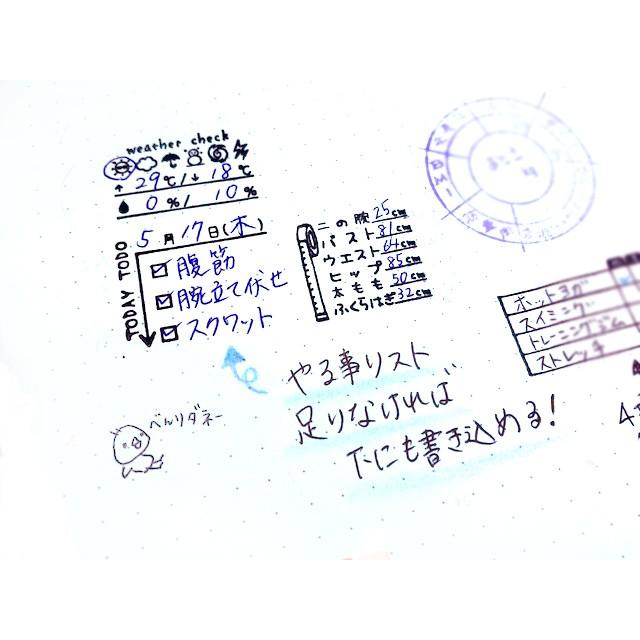 weather check
↑ 29℃/↓ 18℃
0%/ 10%
5月17日(木)
TODAY TODO
腹筋
腕立て伏せ
スクワット
二の腕 25cm
バスト 81cm
ウエスト 64cm
ヒップ 85cm
太もも 50cm
ふくらはぎ 32cm
ホットヨガ
スイミング
トレーニングジム
ストレッチ
やる事リスト
足りなければ
下にも書き込める!
べんりダネー